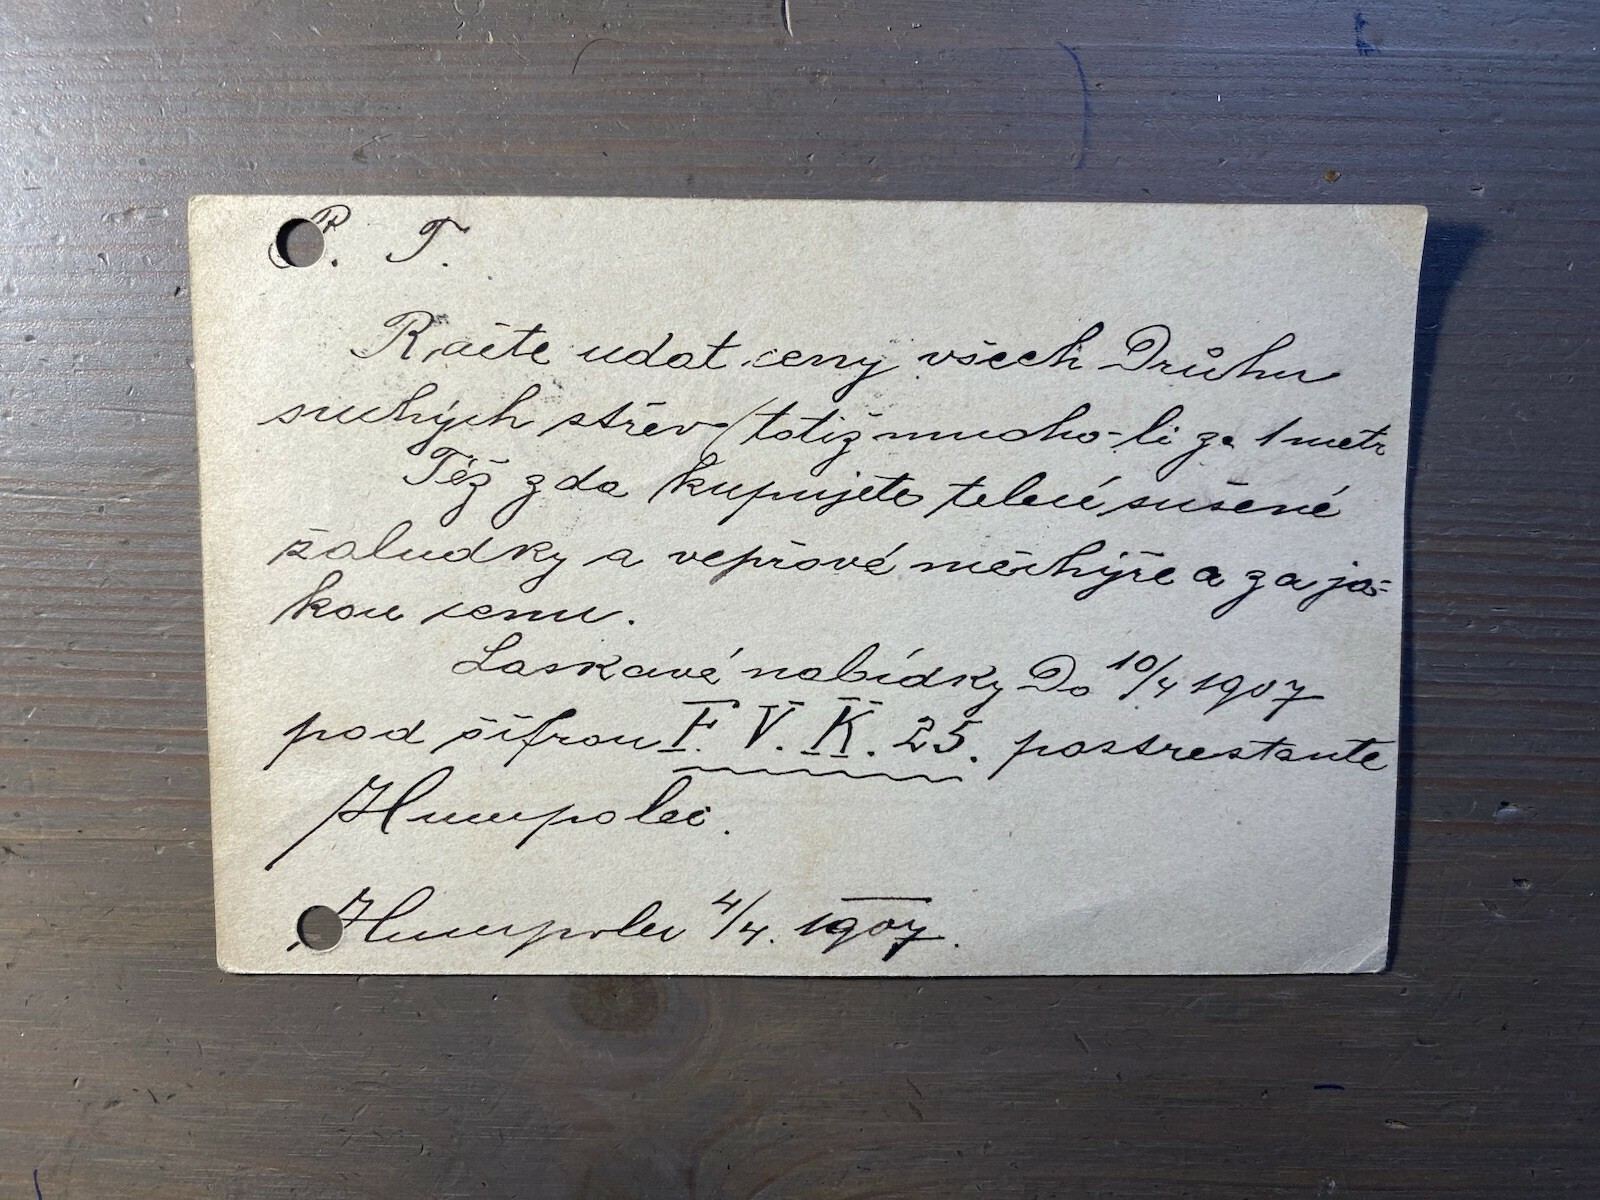 P. T.
Račte udat ceny všech Druhu
suchých střev (totiž mnoho-li za 1 metr
Též zda kupujete telecí sušené
žaludky a vepřové měchýře a za ja=
kou cenu.
Laskavé nabídky Do 10/4 1907
pod šifrou F. V. K. 25. postrestante
Humpolec.
Humpolec 4/4. 1907.